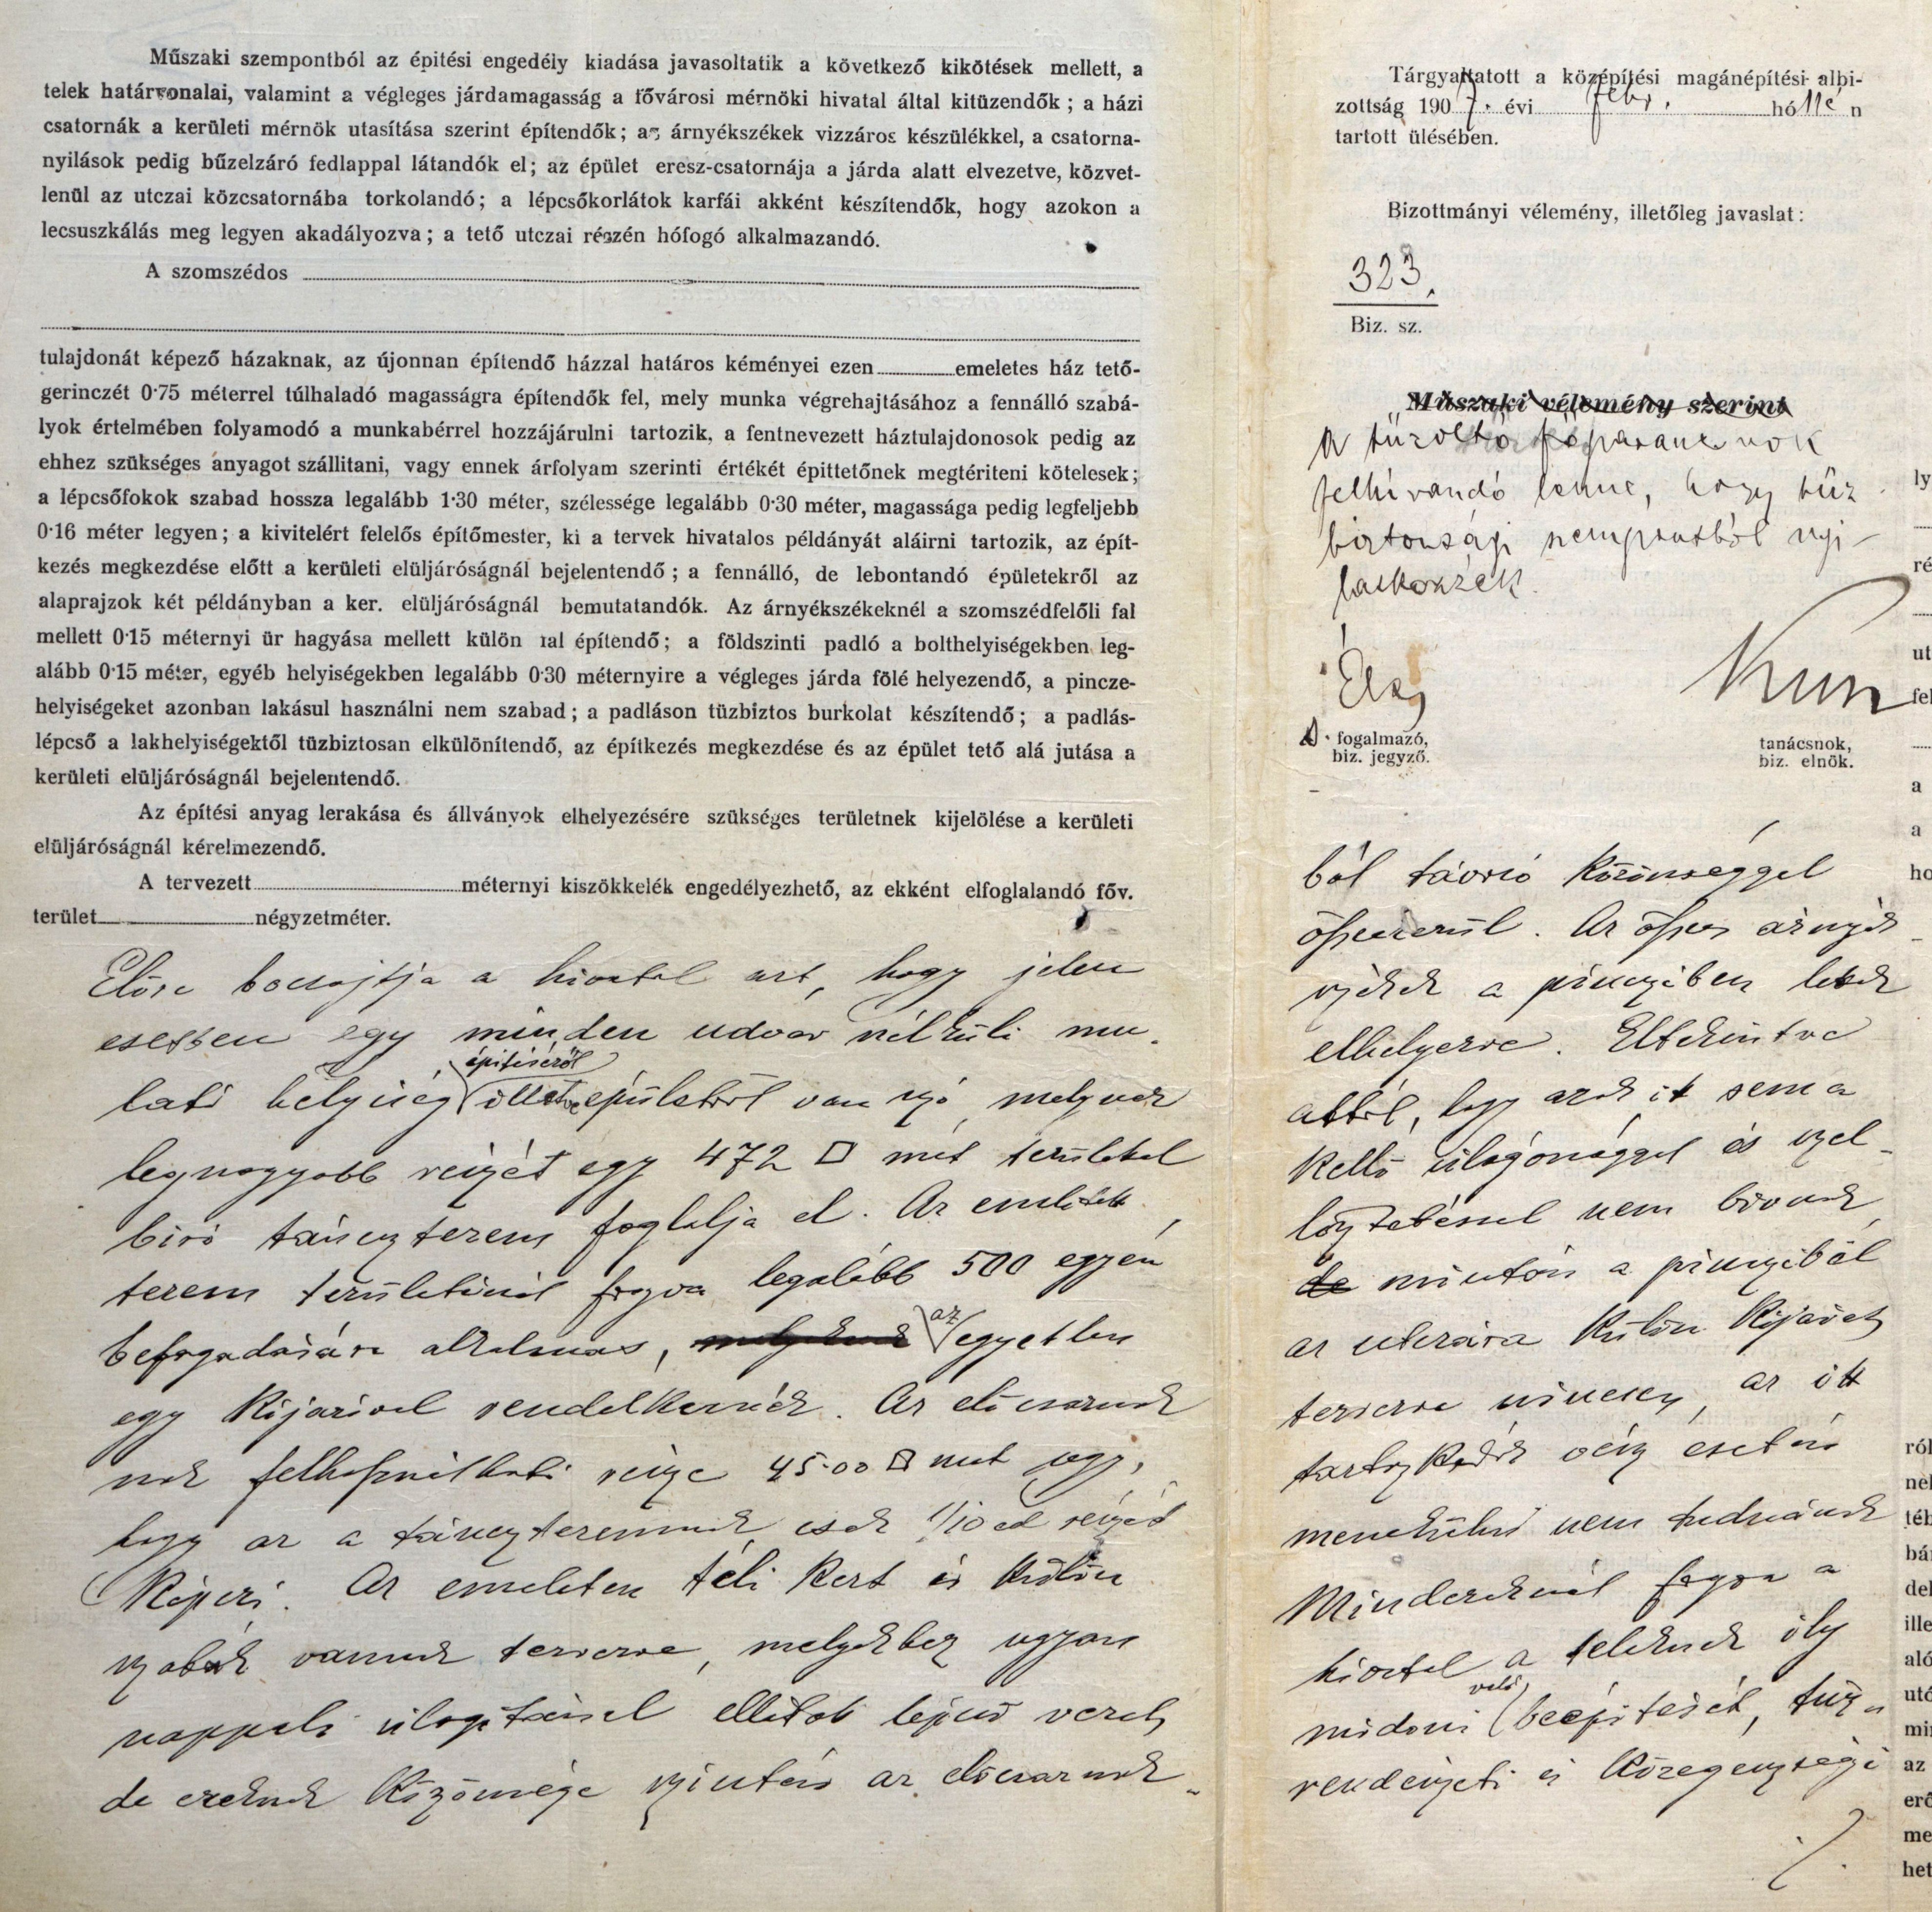 Műszaki szempontból az épitési engedély kiadása javasoltatik a következő kikötések mellett, a
telek határvonalai, valamint a végleges járdamagasság a fővárosi mérnöki hivatal által kitüzendők; a házi
csatornák a kerületi mérnök utasítása szerint építendők; az árnyékszékek vizzáros készülékkel, a csatorna-
nyilások pedig bűzelzáró fedlappal látandók el; az épület eresz-csatornája a járda alatt elvezetve, közvet-
lenül az utczai közcsatornába torkolandó; a lépcsőkorlátok karfái akként készítendők, hogy azokon a
lecsuszkálás meg legyen akadályozva; a tető utczai részén hófogó alkalmazandó.
A szomszédos
tulajdonát képező házaknak, az újonnan építendő házzal határos kéményei ezen emeletes ház tető-
gerinczét 0·75 méterrel túlhaladó magasságra építendők fel, mely munka végrehajtásához a fennálló szabá-
lyok értelmében folyamodó a munkabérrel hozzájárulni tartozik, a fentnevezett háztulajdonosok pedig az
ehhez szükséges anyagot szállitani, vagy ennek árfolyam szerinti értékét épittetőnek megtériteni kötelesek;
a lépcsőfokok szabad hossza legalább 1·30 méter, szélessége legalább 0·30 méter, magassága pedig legfeljebb
0·16 méter legyen; a kivitelért felelős építőmester, ki a tervek hivatalos példányát aláirni tartozik, az épít-
kezés megkezdése előtt a kerületi elüljáróságnál bejelentendő; a fennálló, de lebontandó épületekről az
alaprajzok két példányban a ker. elüljáróságnál bemutatandók. Az árnyékszékeknél a szomszédfelőli fal
mellett 0·15 méternyi ür hagyása mellett külön fal építendő; a földszinti padló a bolthelyiségekben leg-
alább 0·15 méter, egyéb helyiségekben legalább 0·30 méternyire a végleges járda fölé helyezendő, a pincze-
helyiségeket azonban lakásul használni nem szabad; a padláson tüzbiztos burkolat készítendő; a padlás-
lépcső a lakhelyiségektől tüzbiztosan elkülönítendő, az építkezés megkezdése és az épület tető alá jutása a
kerületi elüljáróságnál bejelentendő.
Az építési anyag lerakása és állványok elhelyezésére szükséges területnek kijelölése a kerületi
elüljáróságnál kérelmezendő.
A tervezett méternyi kiszökkelék engedélyezhető, az ekként elfoglalandó főv.
terület négyzetméter.
Előre bocsájtja a hivatal azt, hogy jelen
esetben egy minden udvar nélküli mu-
lató helyiség építéséről illetve épületről van szó, melynek
legnagyobb részét egy 472 □ mét területel
biró táncz terem foglalja el. Az emlitett
terem területénél fogva legalább 500 egyén
befogadására alkalmas, az egyetlen
egy kijárával rendelkeznék. Az előcsarnok
nak felhasználható része 45·00 □ met ugy,
hogy az a táncz teremnek csak 1/10 ed részét
képezi. Az emeleten téli kert és külön
szobák vannak tervezve, melyekhez ugyan
nappali világitással ellátott lépcső vezet,
de ezeknek közönsége szintén az előcsarnok-
Tárgyaltatott a középítési magánépítési albi-
zottság 1907. évi febr. hó 11én
tartott ülésében.
Bizottmányi vélemény, illetőleg javaslat:
323.
Biz. sz.
Műszaki vélemény szerint
A tűzoltó főparancsnok
felhivandó lenne, hogy tűz
biztonsági szempontból nyi-
latkozzék.
Kun
fogalmazó,
biz. jegyző.
tanácsnok,
biz. elnök.
ból távozó közönséggel
összezerül. Az összes árnyék
székek a pinczében lettek
elhelyezve. Eltekintve
attól, hogy azok itt sem a
kellő világossággal és szel-
lőztetéssel nem birnak,
de miután a pinczéből
az utczára külön kijárat
tervezve nincsen, az itt
tartozkodók vész esetén
menekülni nem tudnának
Mindezeknél fogva a
hivatal a teleknek ily
módoni való beépítését, tűz-
rendészeti és közegészségi
./.
ly
ré
ut
fel
a
a
ho
ról
nel
téb
bá
del
ille
aló
utó
min
az
erő
me
het